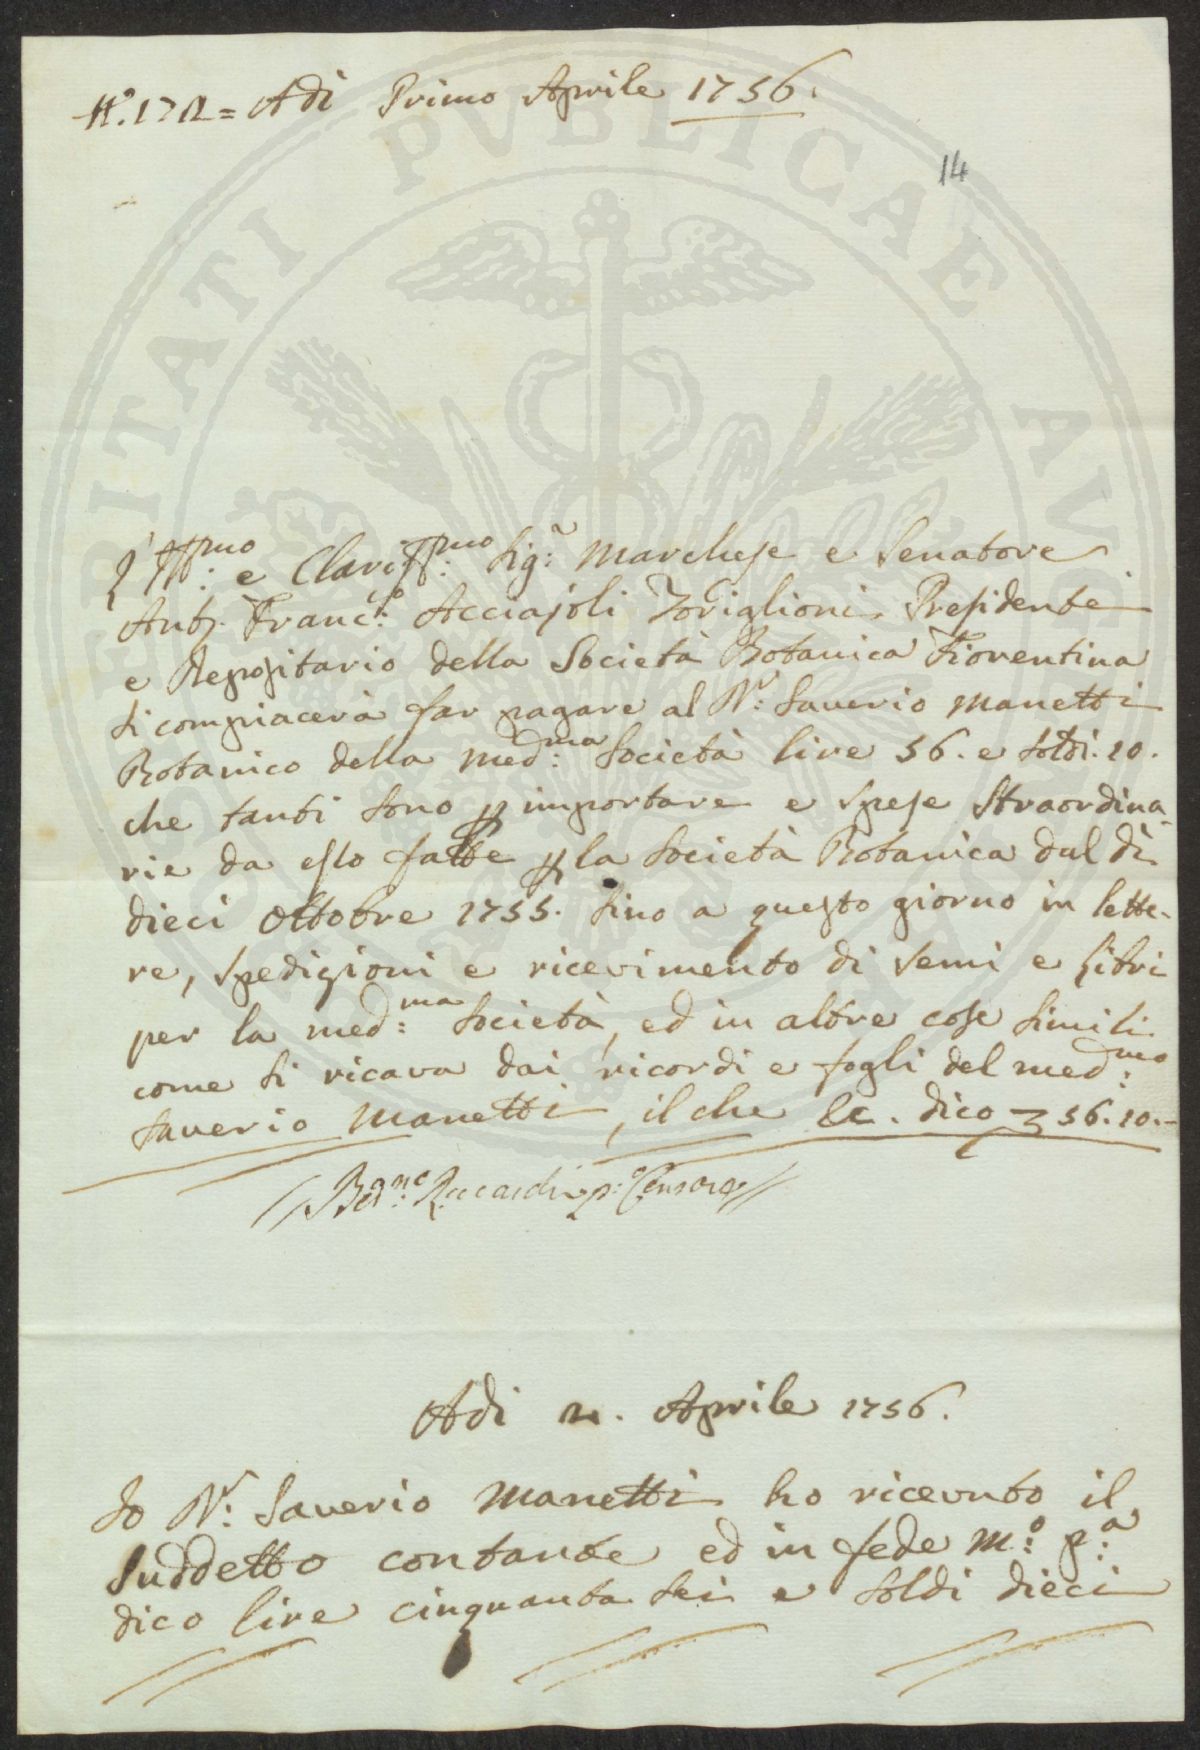 N.° 172 = Adì Primo Aprile 1756.
14
L'Ill:mo e Clariss:mo Sig:r Marchese e Senatore
Ant. Franc:o Acciajoli Toriglioni Presidente
e Depositario della Società Botanica Fiorentina
si compiacerà far pagare al D:r Saverio Manetti
Botanico della med:ma Società lire 56. e soldi. 10.
che tanti sono p importare e spese straordina-
rie da esso fatte p la Società Botanica dal dì
dieci Ottobre 1755. sino a questo giorno in lette-
re, spedizioni e ricevimento di semi e Libri
per la med:ma Società, ed in altre cose simili
come si ricava dai ricordi e fogli del med:mo
Saverio Manetti, il che &c. dico 56.10.-
Riccardi p:o Censore
Adì 2. Aprile 1756.
Io D:r Saverio Manetti ho ricevuto il
suddetto contante ed in fede m:o p:a
dico lire cinquanta sei e soldi dieci
PVBLICAE